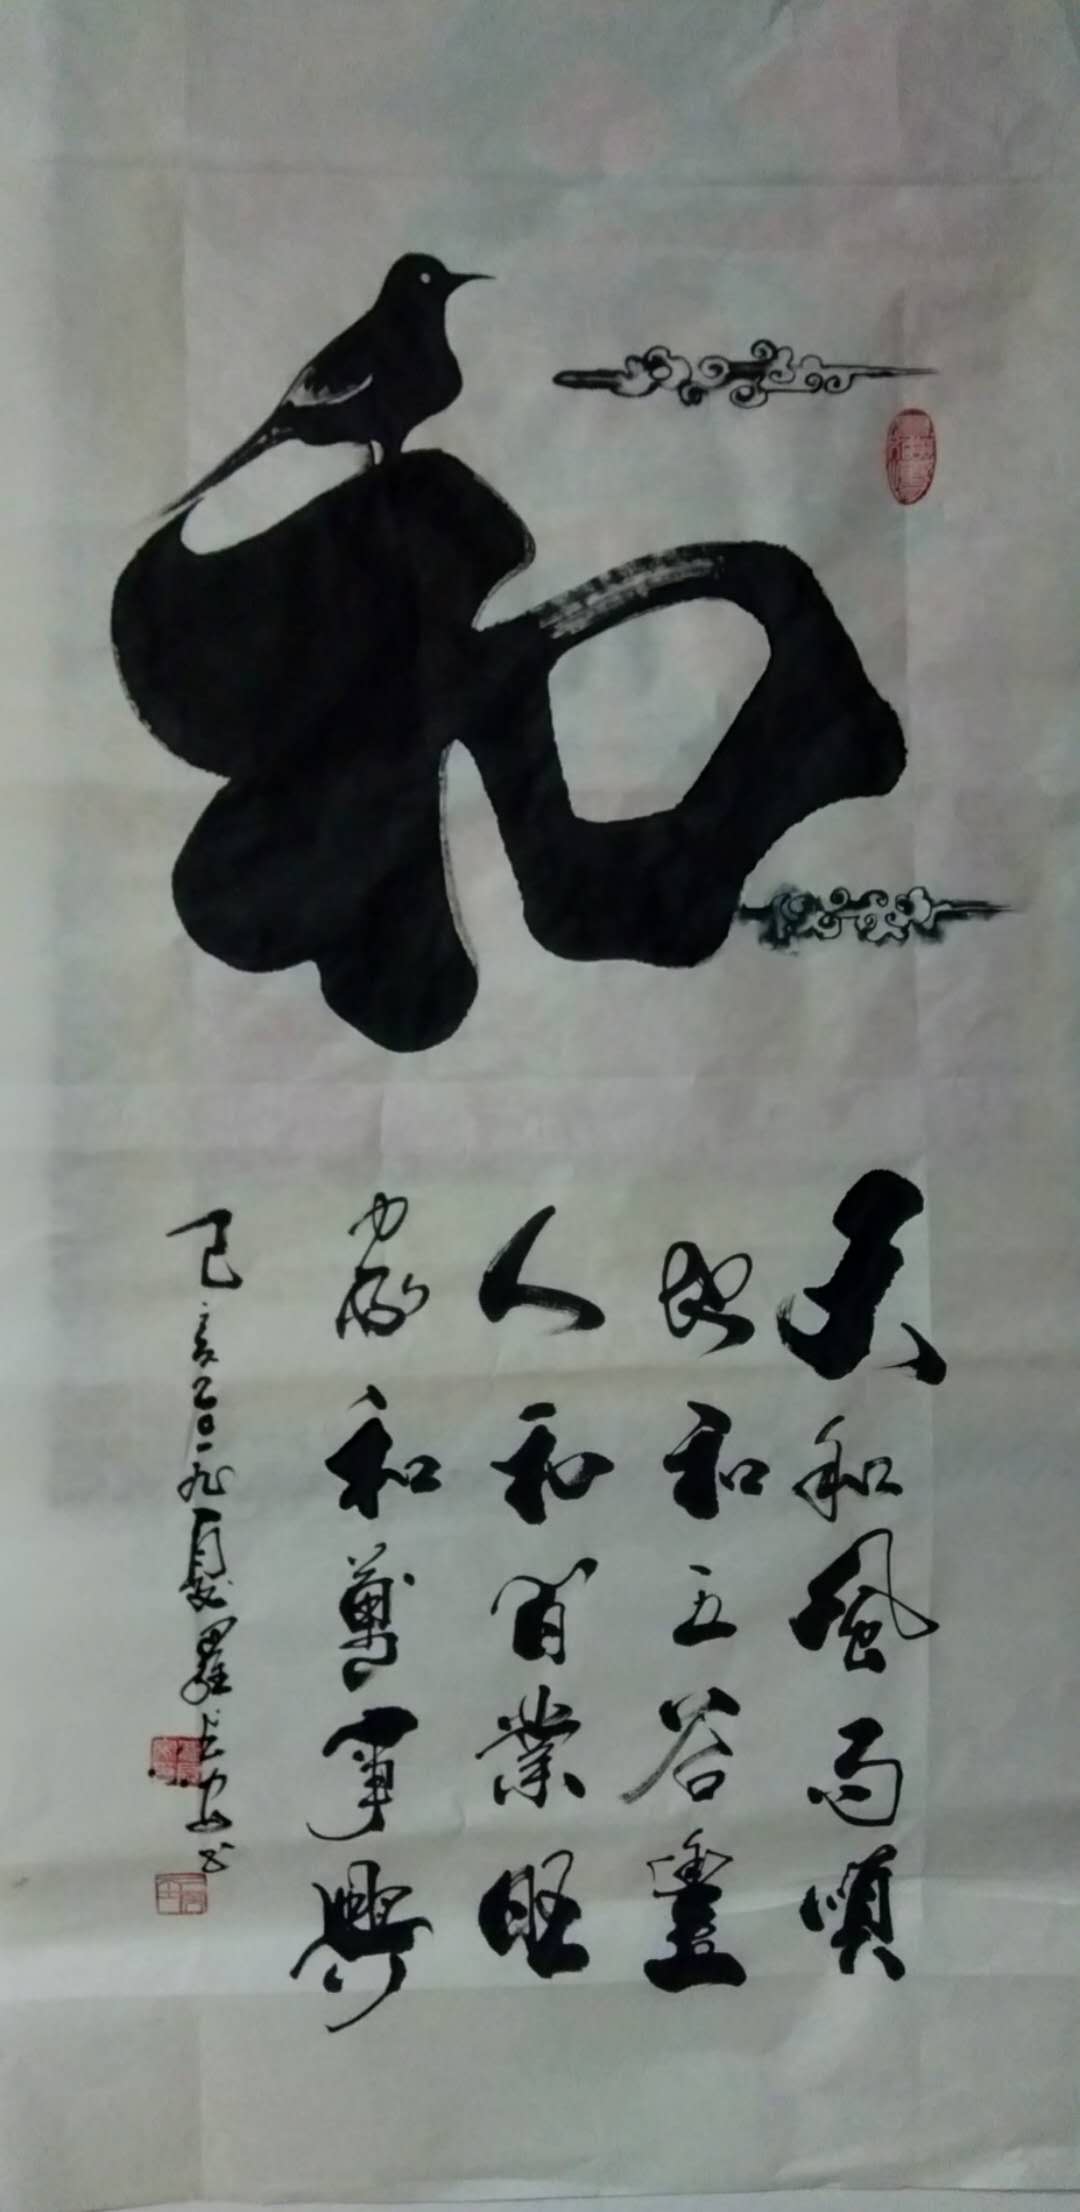 和
天和風雨順
地和五谷豐
人和百業旺
家和萬事興
己亥二〇一九夏羅志安书